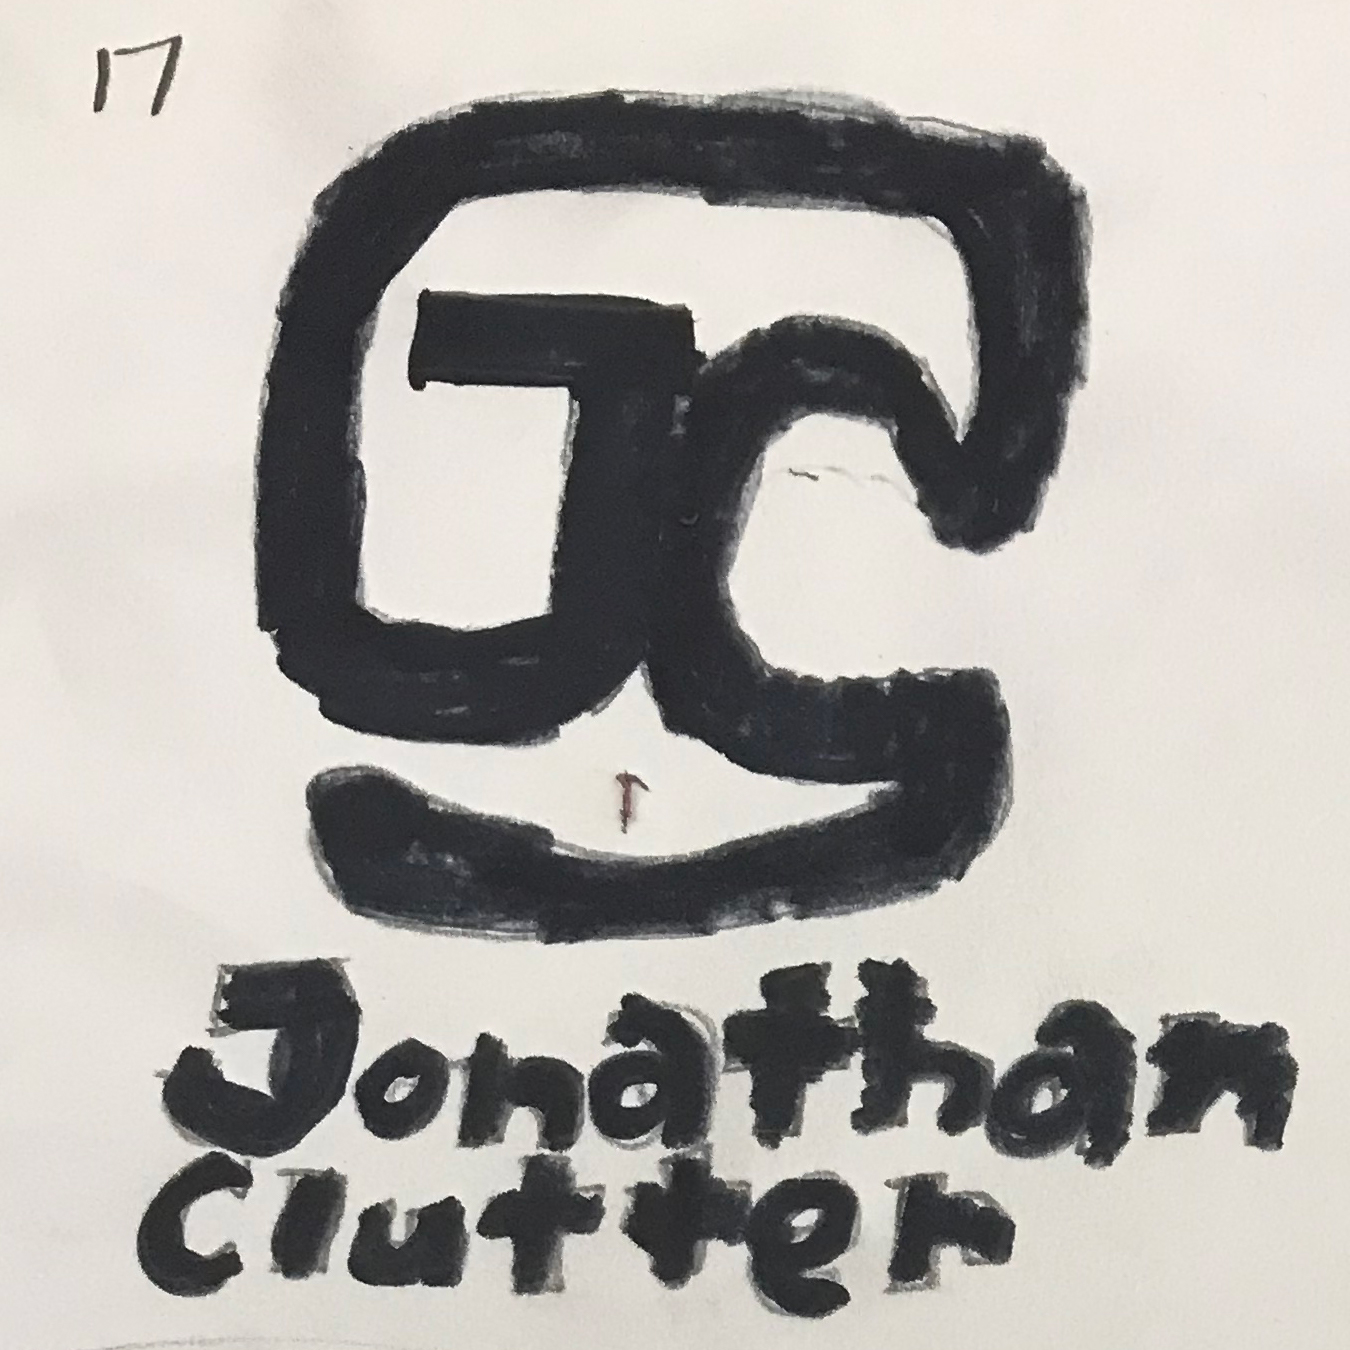 17
JC
Jonathan
Clutter